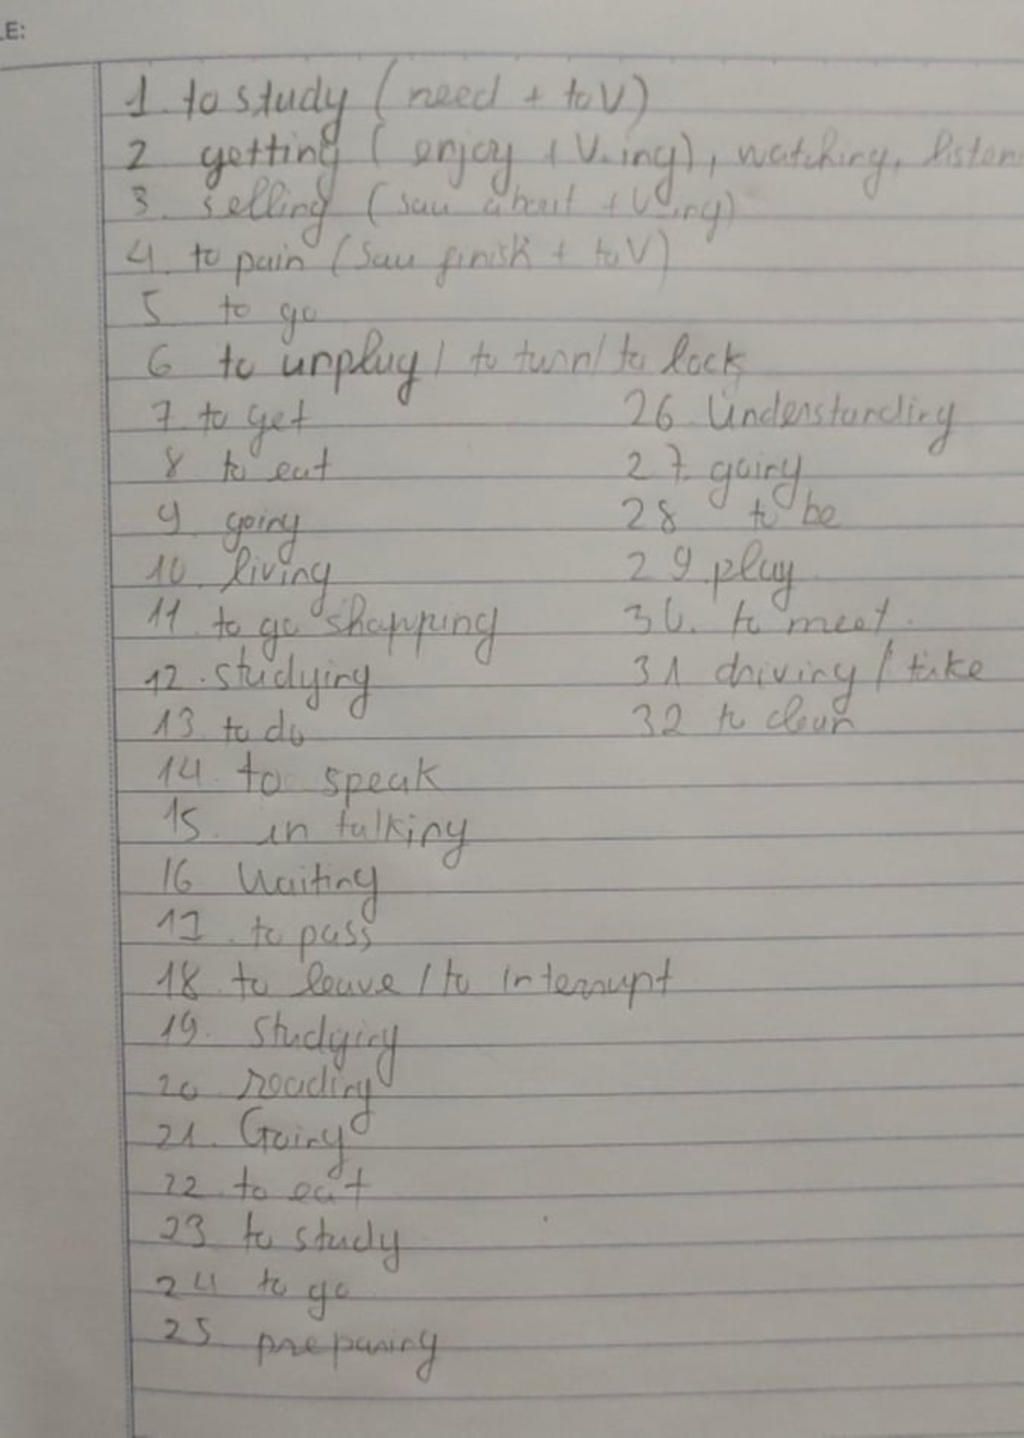 E:
1. to study (need + to V)
2 getting (enjoy + V.ing), watching, listen
3. selling (sau about + V.ing)
4. to pain (sau finish + to V)
5 to go
6 to unplug / to turn / to lock
7. to get
8 to eat
9 going
10. living
11. to go shopping
12. studying
13. to do
14. to speak
15. in talking
16 Waiting
17. to pass
18. to leave / to interrupt
19. Studying
20 reading
21. Going
22. to eat
23 to study
24 to go
25 preparing
26. Understanding
27. going
28 to be
29. play
30. to meet.
31 driving / take
32 to clean